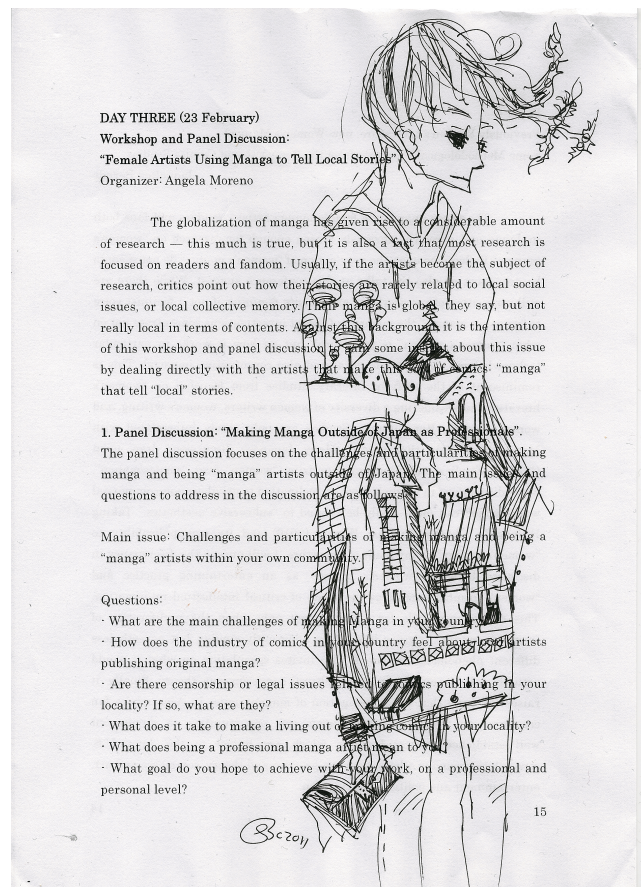 DAY THREE (23 February)
Workshop and Panel Discussion:
“Female Artists Using Manga to Tell Local Stories”
Organizer: Angela Moreno
The globalization of manga has given rise to a considerable amount
of research — this much is true, but it is also a fact that most research is
focused on readers and fandom. Usually, if the artists become the subject of
research, critics point out how their stories are rarely related to local social
issues, or local collective memory. Their manga is global, they say, but not
really local in terms of contents. Against this background, it is the intention
of this workshop and panel discussion to gain some insight about this issue
by dealing directly with the artists that make this sort of comics: “manga”
that tell “local” stories.
1. Panel Discussion: “Making Manga Outside of Japan as Professionals”.
The panel discussion focuses on the challenges and particularities of making
manga and being “manga” artists outside of Japan. The main issues and
questions to address in the discussion are as follows:
Main issue: Challenges and particularities of making manga and being a
“manga” artists within your own community.
Questions:
· What are the main challenges of making Manga in your country?
· How does the industry of comics in your country feel about local artists
publishing original manga?
· Are there censorship or legal issues related to comics publishing in your
locality? If so, what are they?
· What does it take to make a living out of making comics in your locality?
· What does being a professional manga artist mean to you?
· What goal do you hope to achieve with your work, on a professional and
personal level?
15
2011